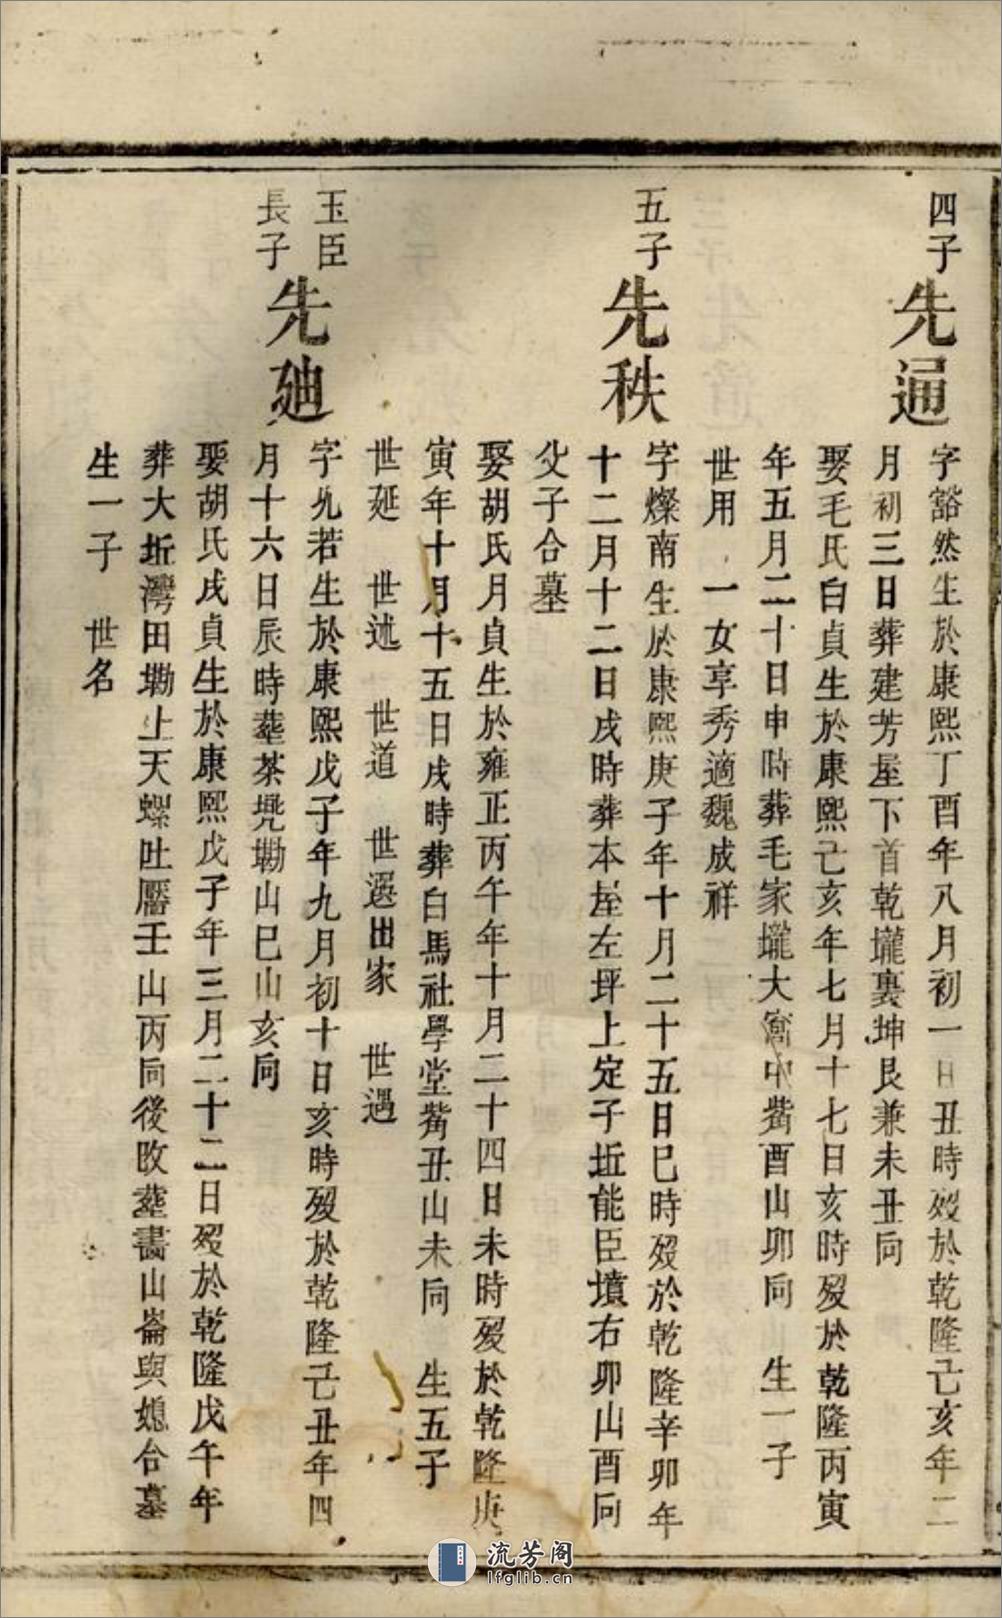 四子
先通
字豁然生於康熙丁酉年八月初一日丑時歿於乾隆己亥年二
月初三日葬建芳屋下首乾壠裏坤艮兼未丑向
娶毛氏白貞生於康熙己亥年七月十七日亥時歿於乾隆丙寅
年五月二十日申時葬毛家壠大窩中嘴酉山卯向 生一子
世用 一女享秀適魏成祥
五子
先秩
字燦南生於康熙庚子年十月二十五日巳時歿於乾隆辛卯年
十二月十二日戌時葬本屋左坪上定子坵能臣墳右卯山酉向
父子合墓
娶胡氏月貞生於雍正丙午年十月二十四日未時歿於乾隆庚
寅年十月十五日戌時葬白馬社學堂嘴丑山未向 生五子
世延 世述 世道 世選出家 世遇
玉臣
長子
先廸
字允若生於康熙戊子年九月初十日亥時歿於乾隆己丑年四
月十六日辰時塟茶凳塝山巳山亥向
娶胡氏戌貞生於康熙戊子年三月二十二日歿於乾隆戊午年
葬大坵灣田塝上天螺吐靨壬山丙向後改塟書山崙與媳合墓
生一子 世名
流芳阁
lfglib.cn